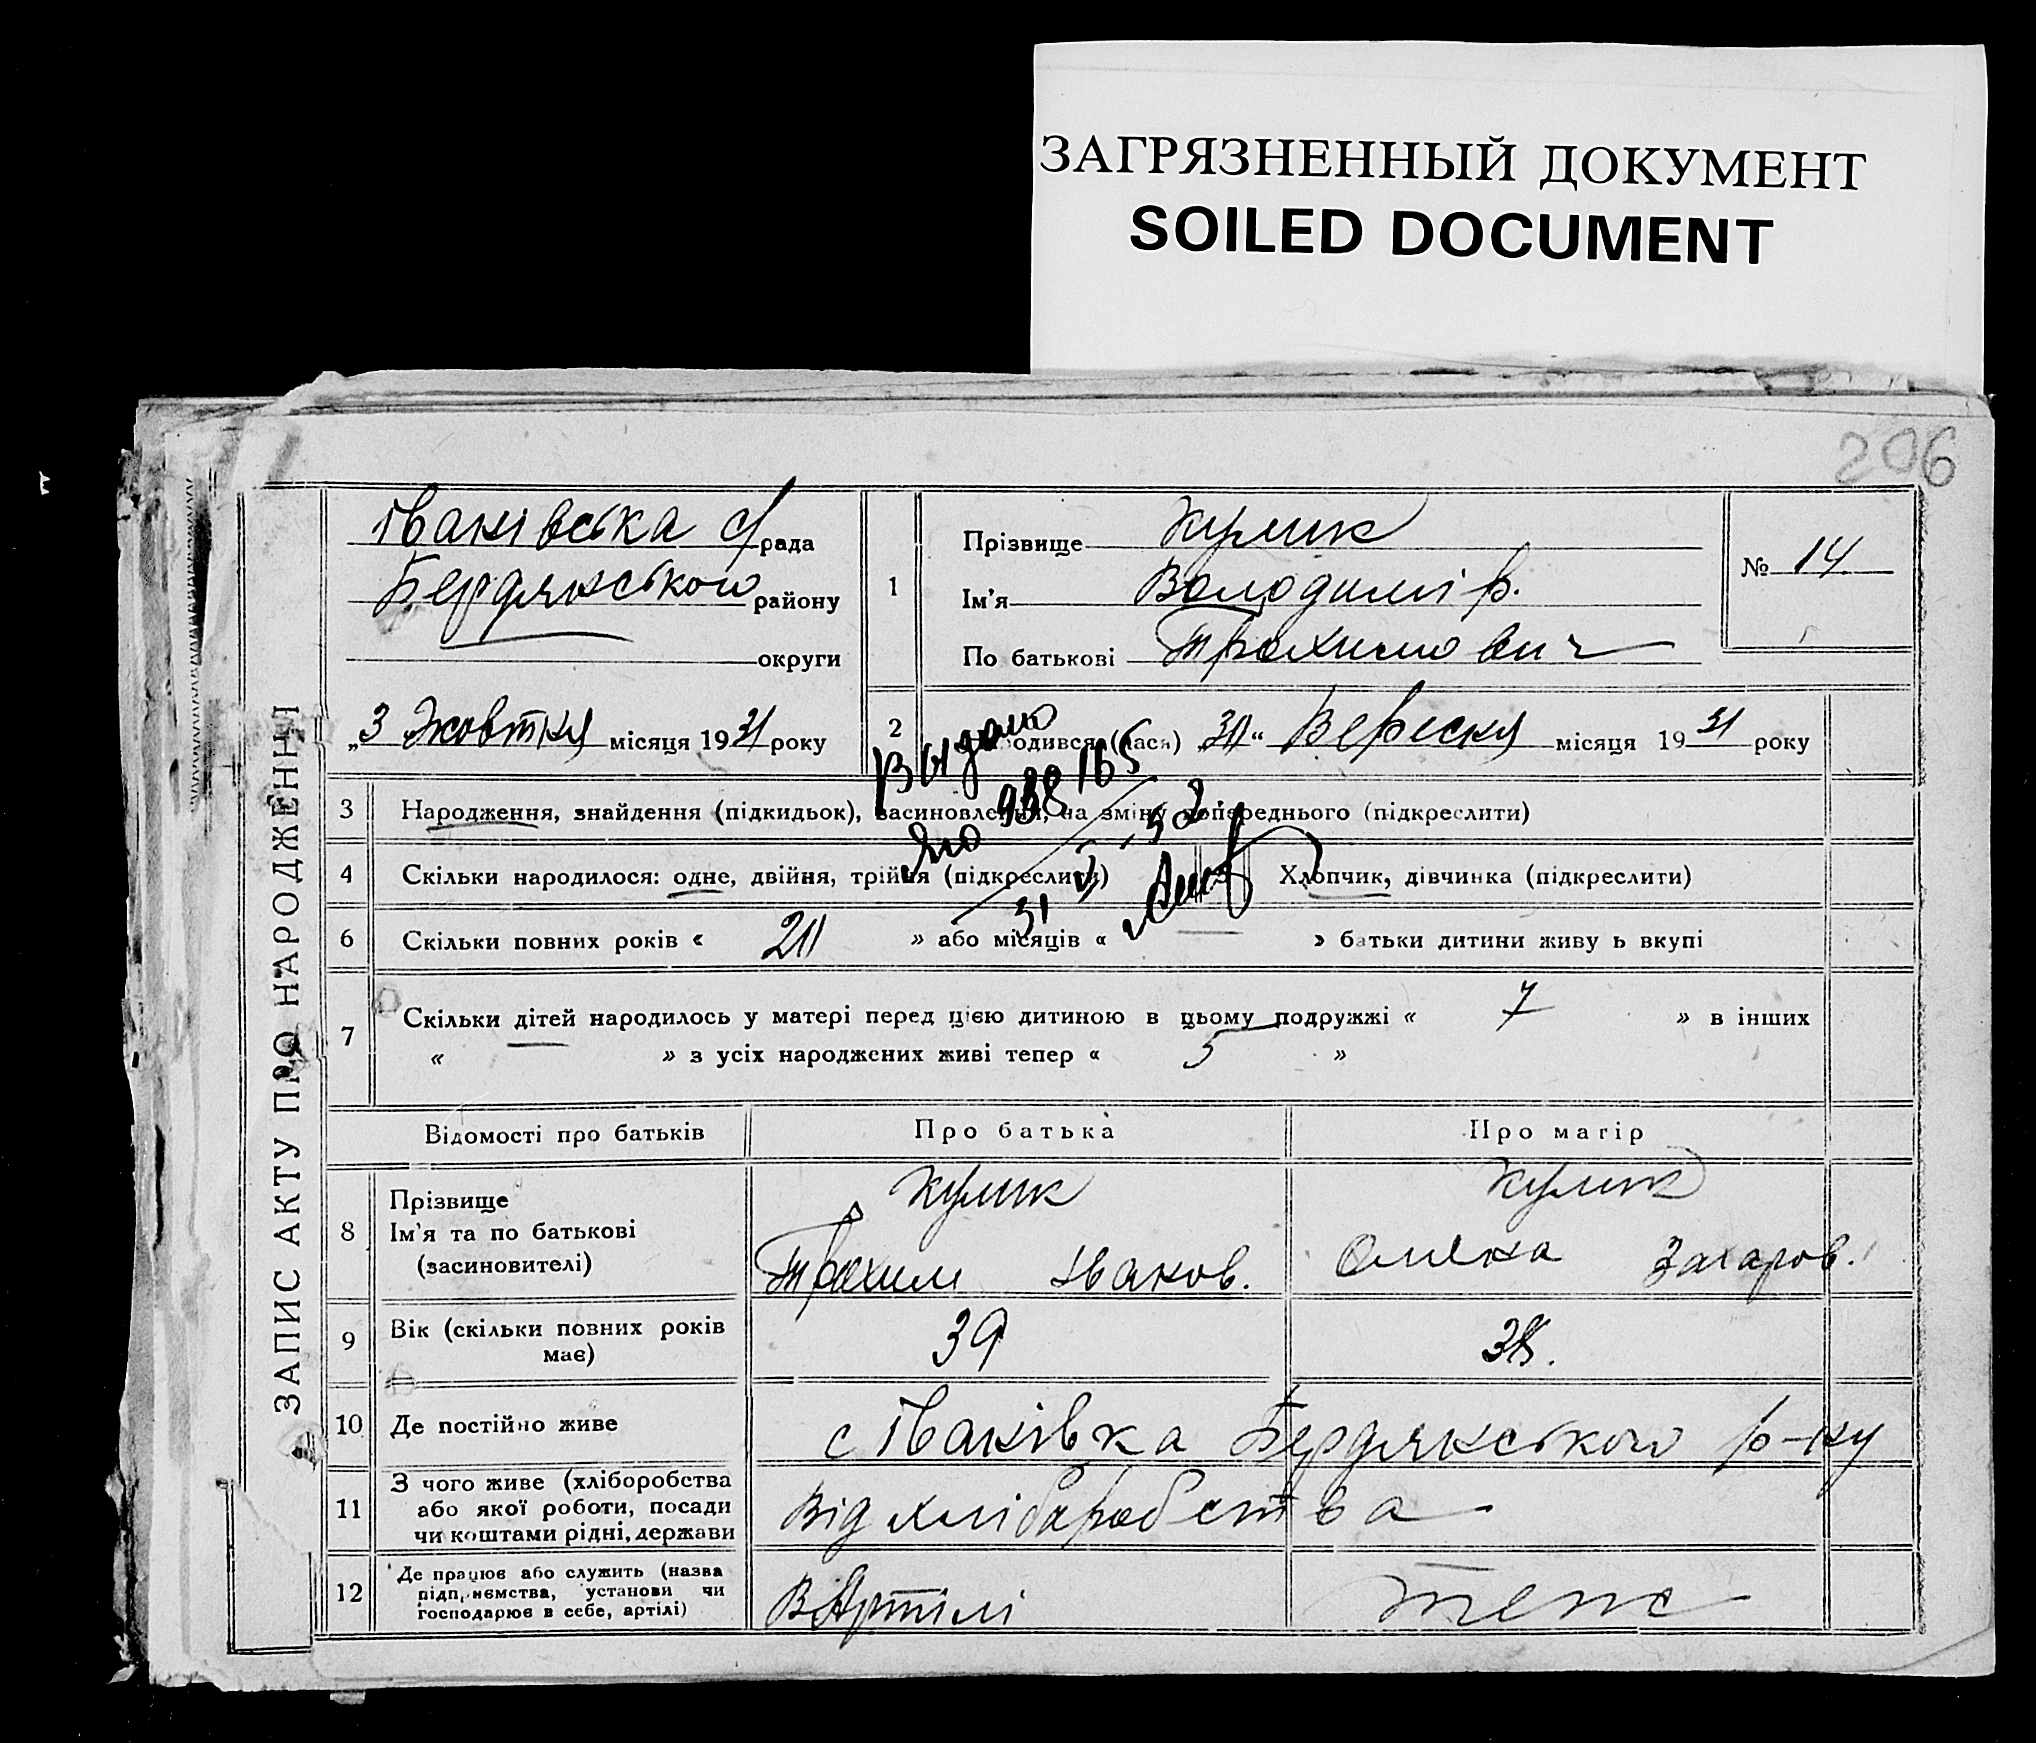 ЗАГРЯЗНЕННЫЙ ДОКУМЕНТ
SOILED DOCUMENT
206
ЗАПИС АКТУ ПРО НАРОДЖЕННЯ
Іванівська с/рада
Бердянського району
округи
„3 Жовтня місяця 1931 року
1
Прізвище Кулик
Ім'я Володимір.
По батькові Трохимович
№ 14.
2
одився (лася) „30“ Вересня місяця 1931 року
Выдано
ЯЮ 938165
31 V 52
3 Народження, знайдення (підкидьок), засиновлення, на зміну попереднього (підкреслити)
4 Скільки народилося: одне, двійня, трійня (підкреслити)
Хлопчик, дівчинка (підкреслити)
6 Скільки повних років « 20 » або місяців « — » батьки дитини живу ь вкупі
7 Скільки дітей народилось у матері перед цією дитиною в цьому подружжі « 7 » в інших
« » з усіх народжених живі тепер « 5 »
Відомості про батьків Про батька Про матір
8 Прізвище
Ім'я та по батькові
(засиновителі)
Кулик
Трохим Іванов.
Кулик
Олена Захаров.
9 Вік (скільки повних років має) 39 38.
10 Де постійно живе с Іванівка Бердянського р-ну
11 З чого живе (хліборобства
або якої роботи, посади
чи коштами рідні, держави
Від хліборобства
12 Де працює або служить (назва
підприємства, установи чи
господарює в себе, артілі)
В Артілі
теж